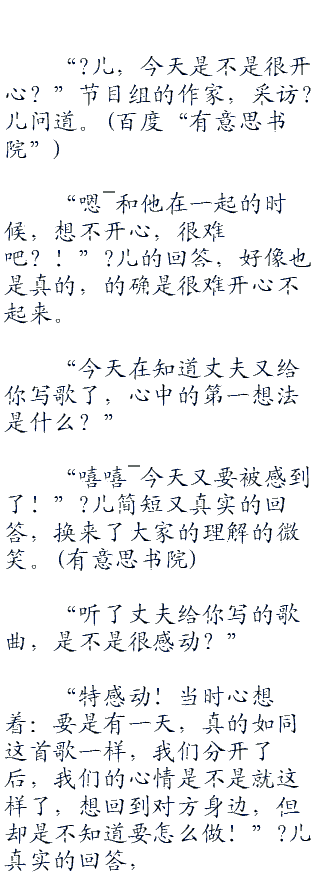 “?儿，今天是不是很开
心？”节目组的作家，采访?
儿问道。(百度“有意思书
院”)
“嗯¯和他在一起的时
候，想不开心，很难
吧？！”?儿的回答，好像也
是真的，的确是很难开心不
起来。
“今天在知道丈夫又给
你写歌了，心中的第一想法
是什么？”
“嘻嘻¯今天又要被感到
了！”?儿简短又真实的回
答，换来了大家的理解的微
笑。(有意思书院)
“听了丈夫给你写的歌
曲，是不是很感动？”
“特感动！当时心想
着：要是有一天，真的如同
这首歌一样，我们分开了
后，我们的心情是不是就这
样了，想回到对方身边，但
却是不知道要怎么做！”?儿
真实的回答，